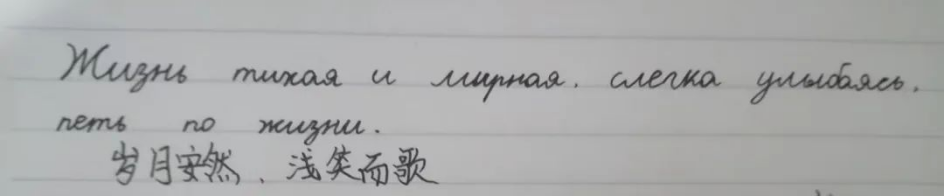 Жизнь тихая и мирная. слегка улыбаясь.
петь по жизни.
岁月安然、浅笑而歌